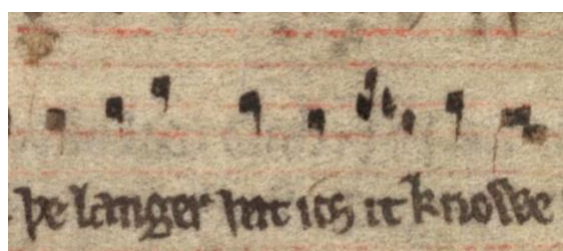 þe langer þat ich it knowe